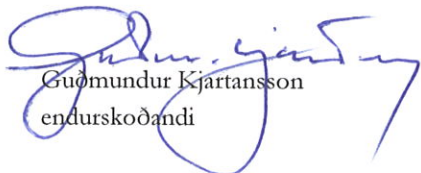 Guðmundur Kjartansson
endurskoðandi